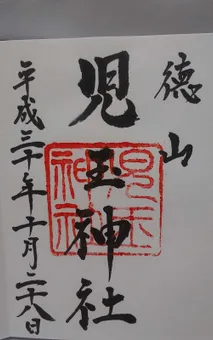 徳山
児玉神社
平成三十年十月二十八日
児玉神社